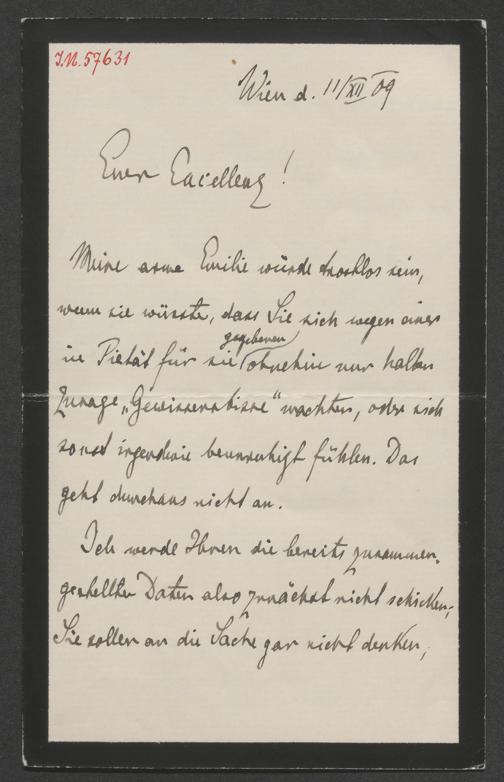 I.N. 57631
Wien d. 11/XII 09
Euer Excellenz!
Meine arme Emilie würde trostlos sein,
wenn sie wüsste, dass Sie sich wegen einer
gegebenen
in Pietät für sie ohnehin nur halben
Zusage „Gewissensbisse" machten, oder sich
sonst irgendwie beunruhigt fühlen. Das
geht durchaus nicht an.
Ich werde Ihnen die bereits zusammen-
gestellten Daten also zunächst nicht schicken;
Sie sollen an die Sache gar nicht denken,